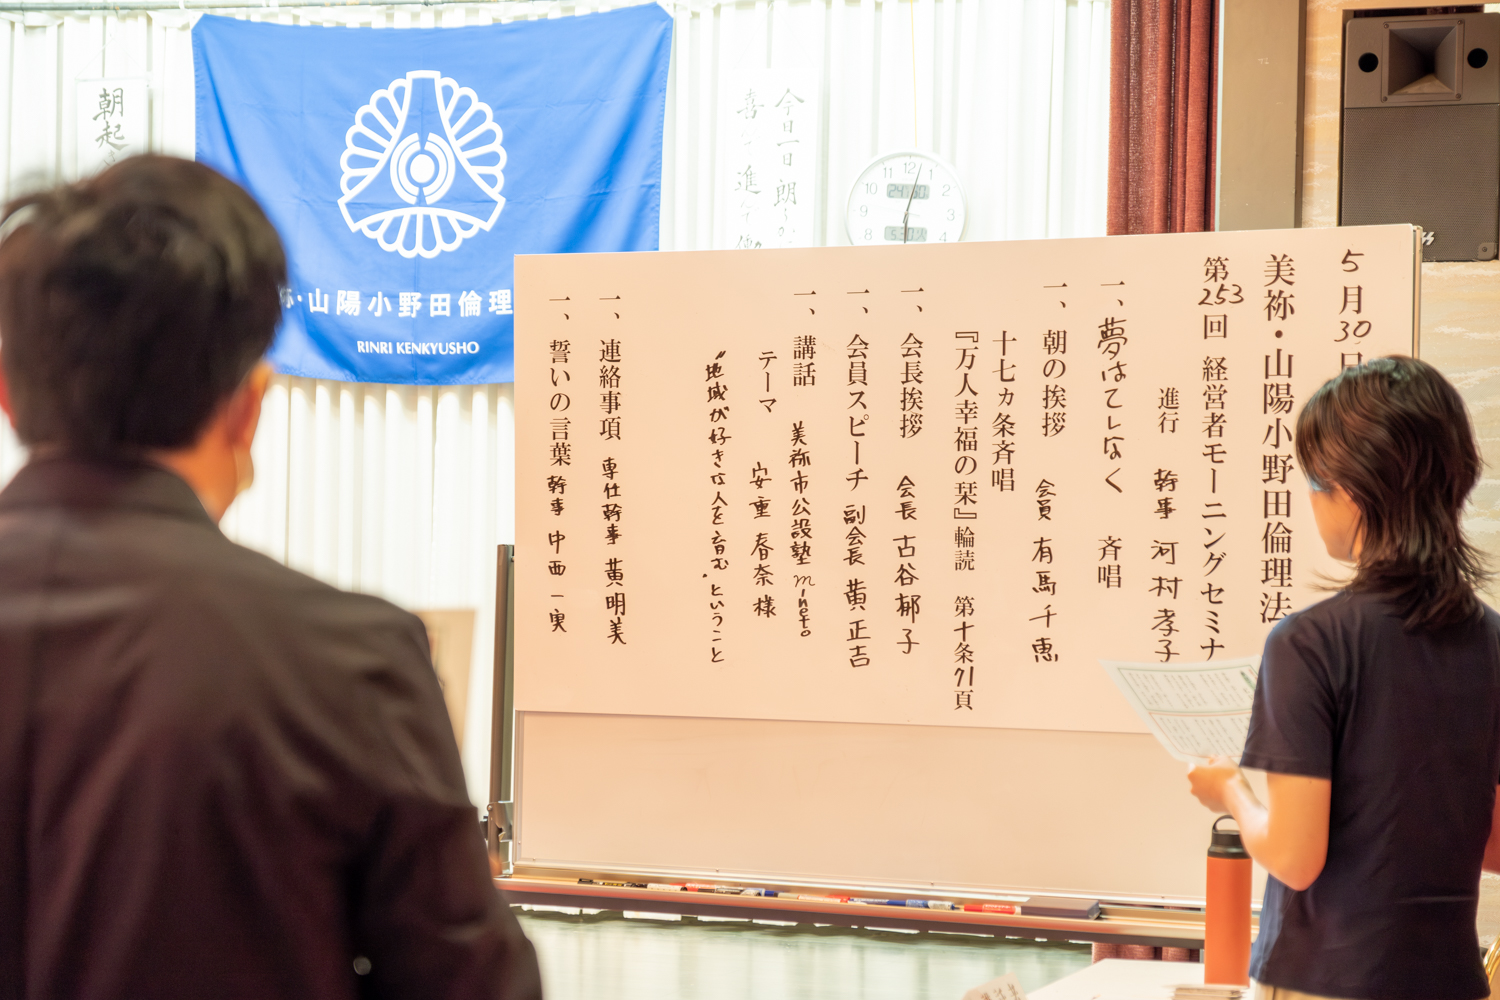 5月30日
美祢・山陽小野田倫理法
第253回 経営者モーニングセミナ
進行 幹事 河村孝子
一、夢はてしなく 斉唱
一、朝の挨拶 会員 有馬千恵
十七ヵ条斉唱
『万人幸福の栞』輪読 第十条71頁
一、会長挨拶 会長 古谷郁子
一、会員スピーチ 副会長 黄正吉
一、講話 美祢市公設塾mineto。
テーマ 安重春奈様
〝地域が好きな人を育む〟ということ
一、連絡事項 専任幹事 黄明美
一、誓いの言葉 幹事 中西一実
祢・山陽小野田倫理
RINRI KENKYUSHO
朝起
今日一日朗
喜 進 働
11 12 1
10 2
9 3
8 4